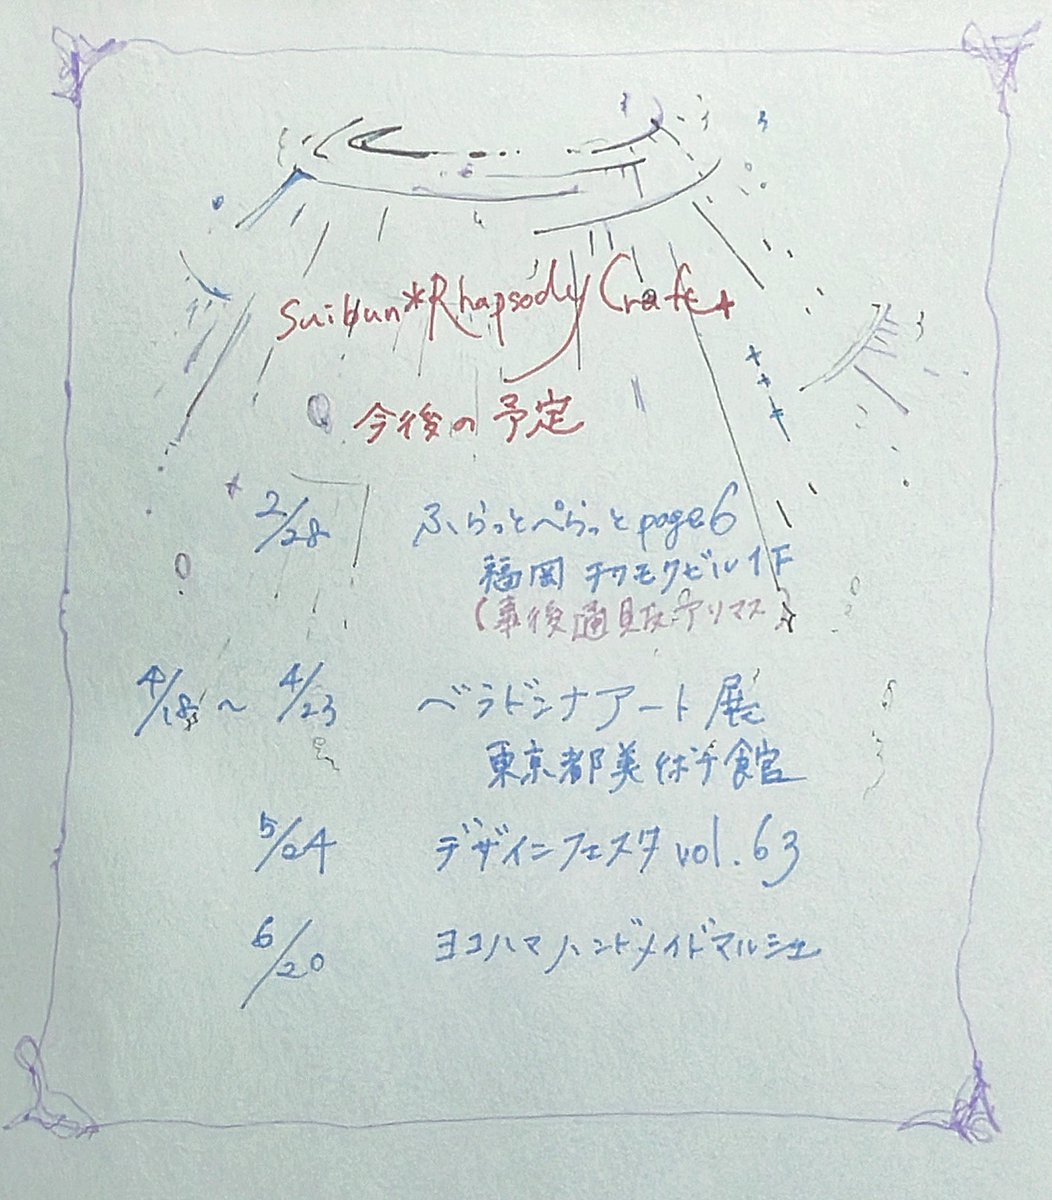 Suibun*Rhapsody Craft
今後の予定
2/28 ふらっとぺらっとpage6
福岡 チクモクビル1F
(事後通販アリマス)
4/18 ~ 4/23 ベラドンナアート展
東京都美術館
5/24 デザインフェスタ vol.63
6/20 ヨコハマハンドメイドマルシェ